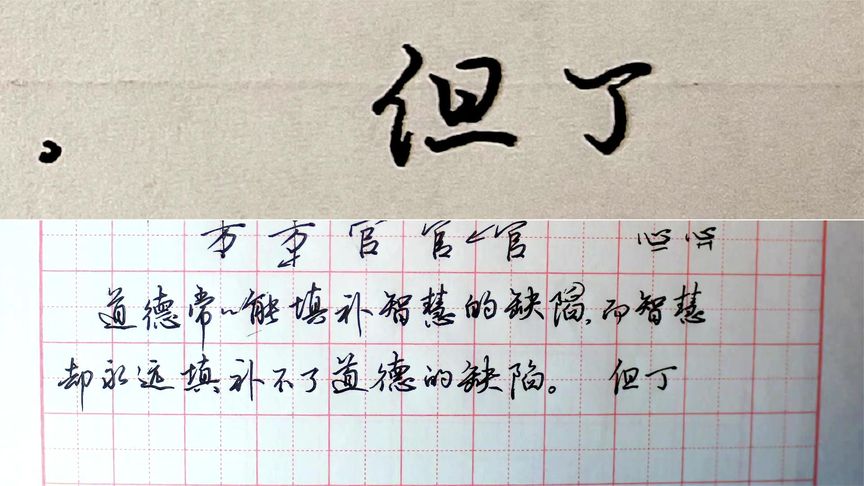 。 但丁
官 官 官 心 心
道德常々能填补智慧的缺陷,而智慧
却永远填补不了道德的缺陷。 但丁